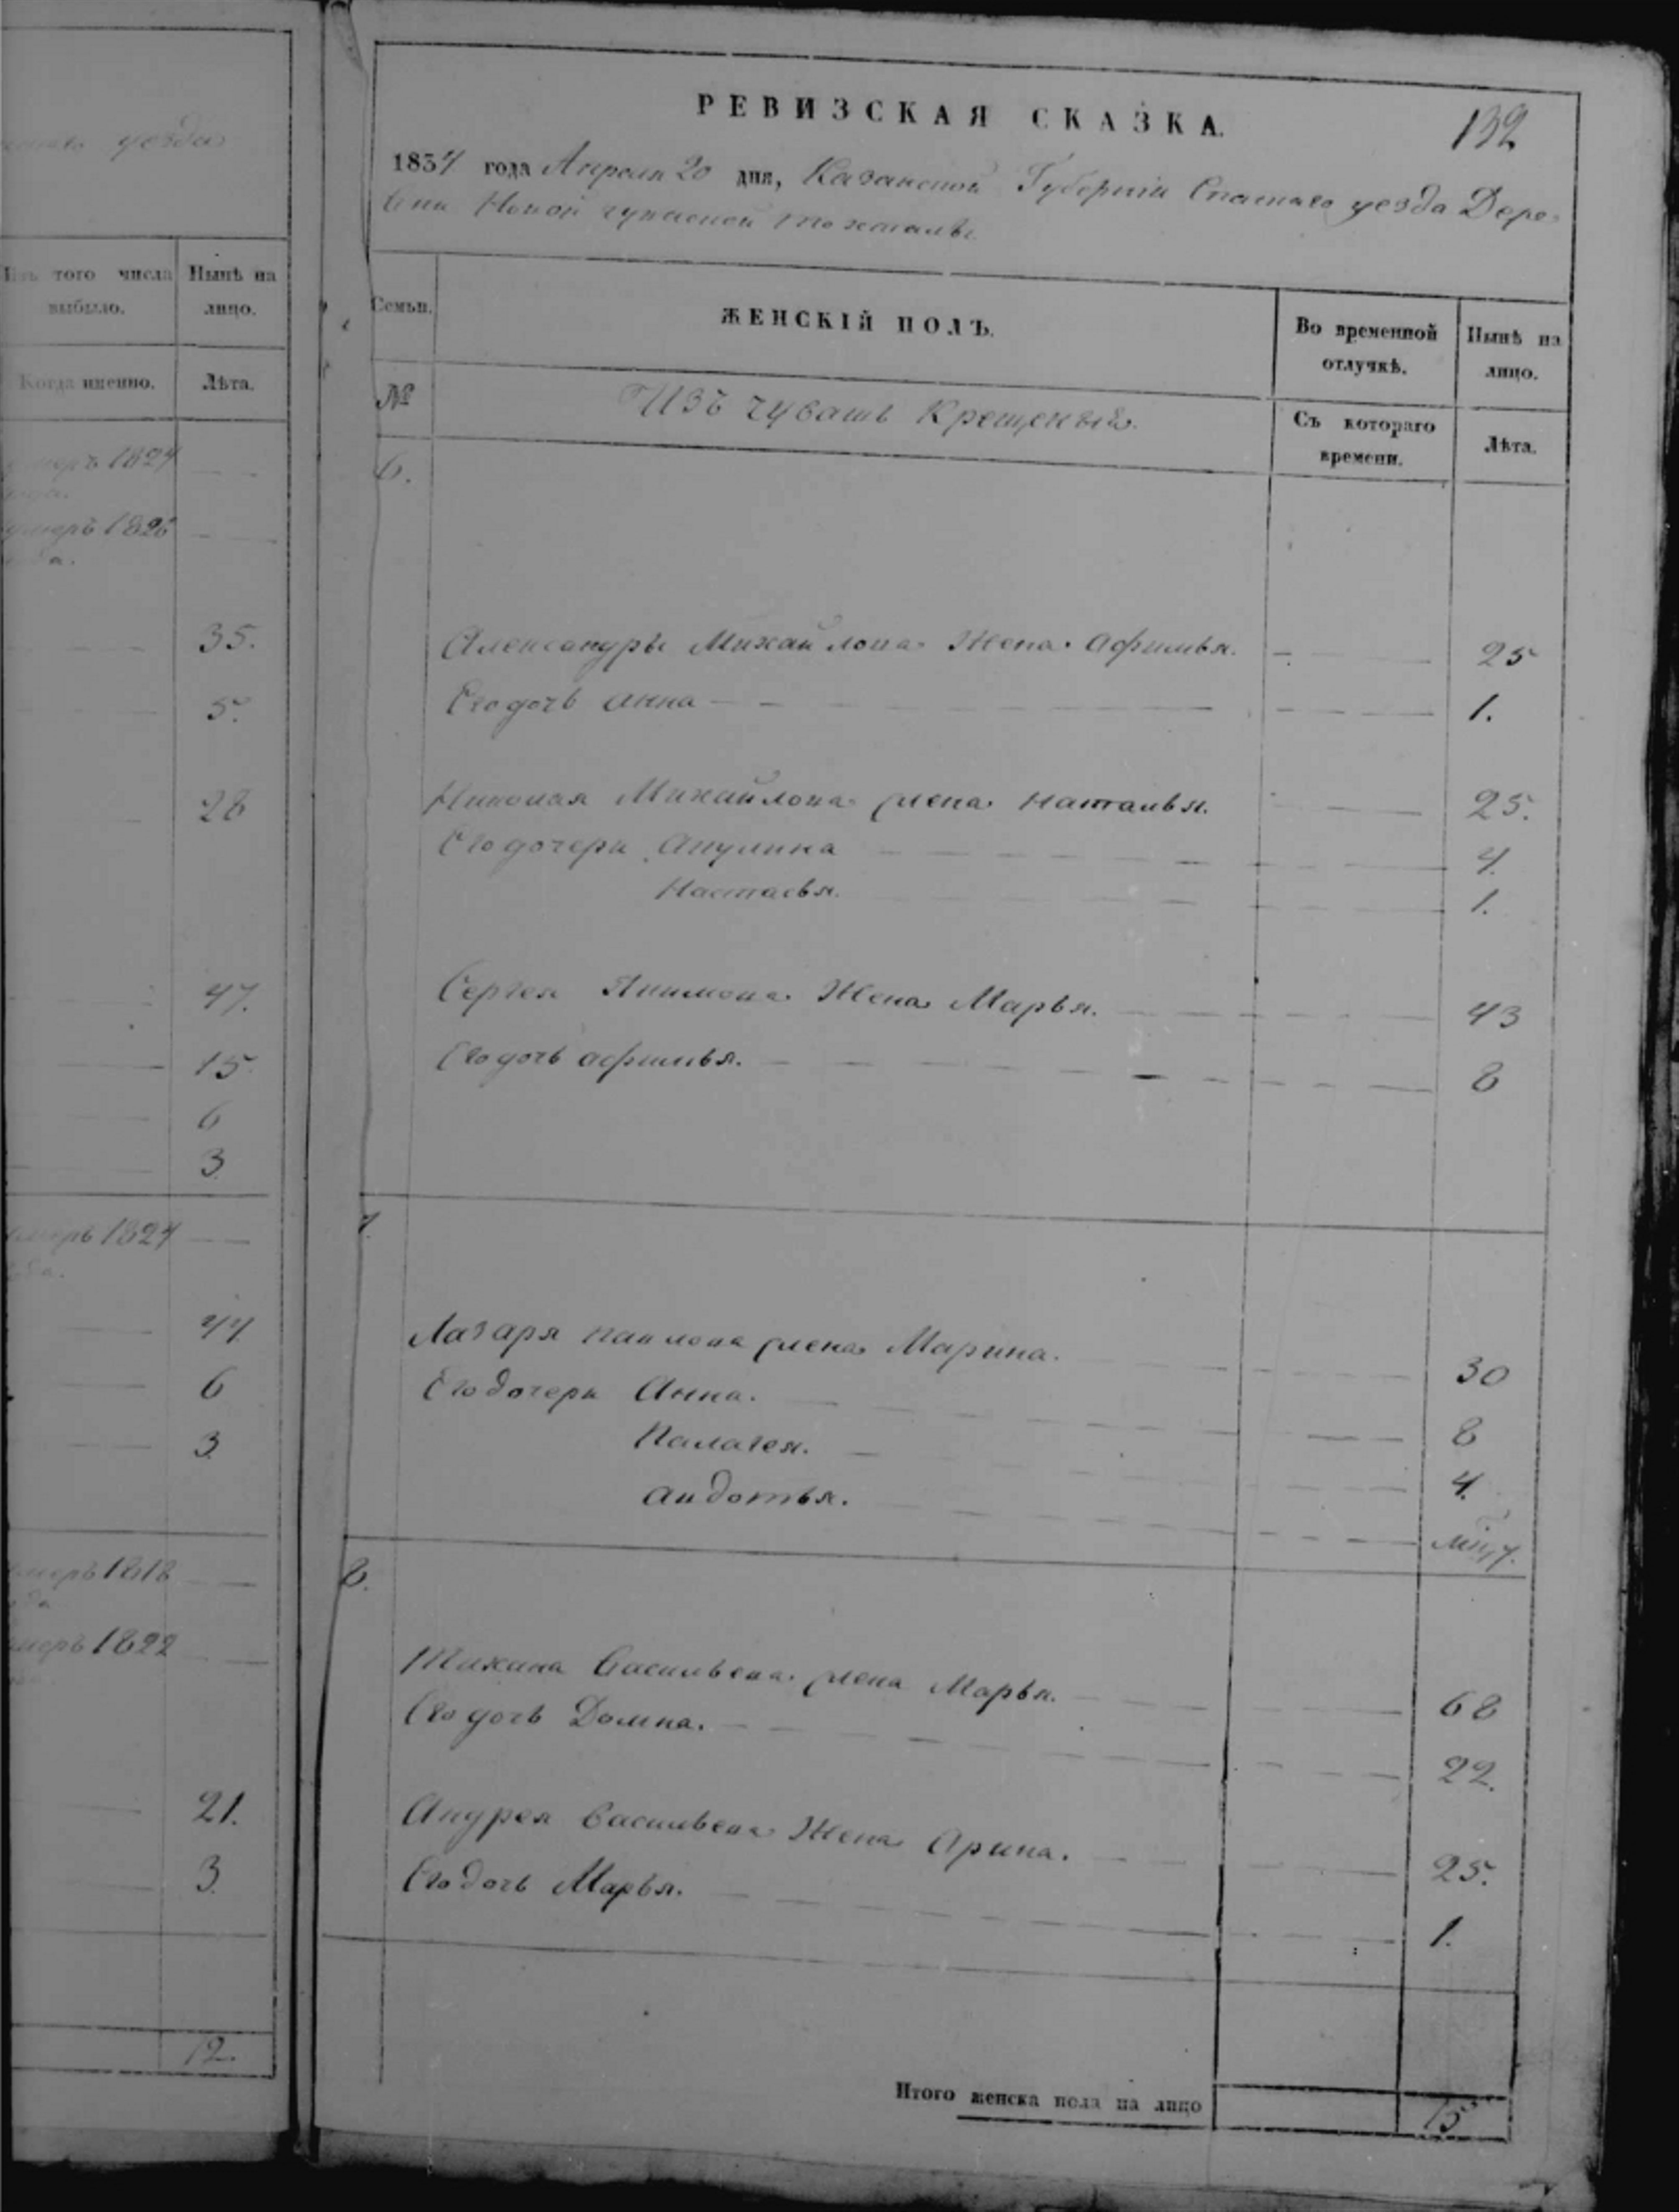 уезда
Изъ того числа выбыло.
Нынѣ на лицо.
Когда именно.
Лѣта.
умеръ 1824
умеръ 1826
35.
5.
28
47.
15
6
3.
умеръ 1824
44
6
3
умеръ 1818
умеръ 1822
21.
3.
12.
РЕВИЗСКАЯ СКАЗКА.
132
1834 года Апреля 20 дня, Казанской Губернiи Спаскаго уезда Дере-
вни Новой
Семьи.
ЖЕНСКIЙ ПОЛЪ.
Во временной отлучкѣ.
Нынѣ на лицо.
№
Изъ чувашъ Крещеныхъ.
Съ котораго времени.
Лѣта.
6.
Александры Михайлова Жена Афимья. 25
Его дочь анна 1.
Николая Михайлова жена наталья. 25.
Его дочери Акулина 4.
Настасья. 1.
Сергея Якимова Жена Марья. 43
Его дочь афимья. 8
7.
Лазаря павлова жена Марина. 30
Его дочери Анна. 8
Палагея. 4.
авдотья.
8.
Тихана Васильева жена Марья. 68
Его дочь Домна. 22.
Андрея Васильева Жена Арина. 25.
Его дочь Марья. 1.
Итого женска пола на лицо 15